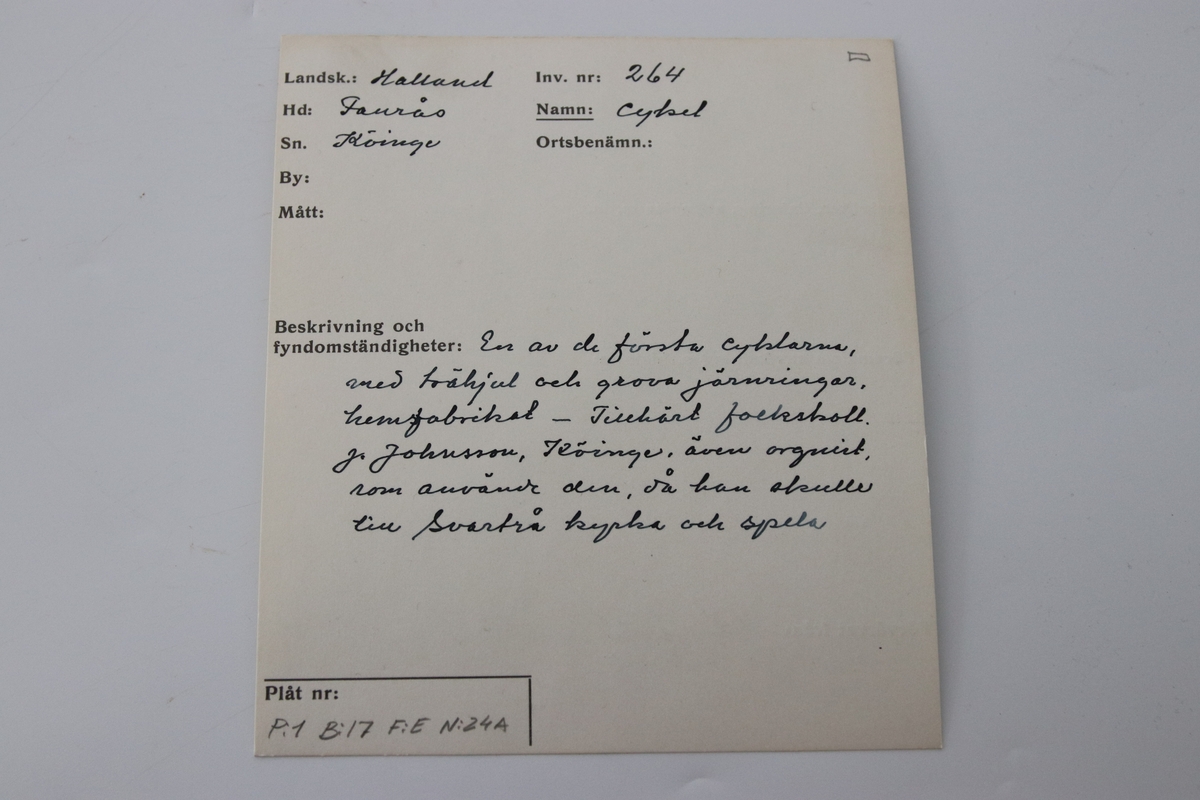 Landsk.: Halland Inv. nr: 264
Hd: Faurås Namn: Cykel
Sn. Köinge Ortsbenämn.:
By:
Mått:
Beskrivning och
fyndomständigheter: En av de första cyklarna,
med trähjul och grova järnringar,
hemfabrikat – Tillhört folkskoll.
J. Johnsson, Köinge, även orgnist,
som använde den, då han skulle
till Svartrå kyrka och spela
Plåt nr:
P:1 B:17 F:E N:24A